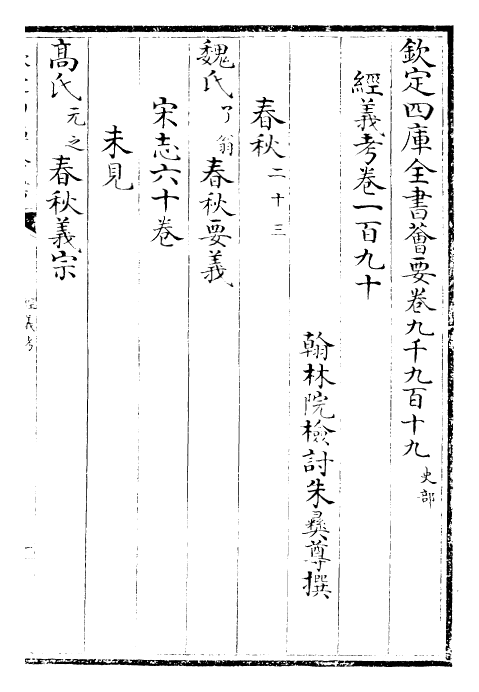 欽定四庫全書薈要卷九千九百十九 史部
經義考卷一百九十
翰林院檢討朱彝尊撰
春秋二十三
魏氏了翁春秋要義
宋志六十卷
未見
高氏元之春秋義宗
經義考